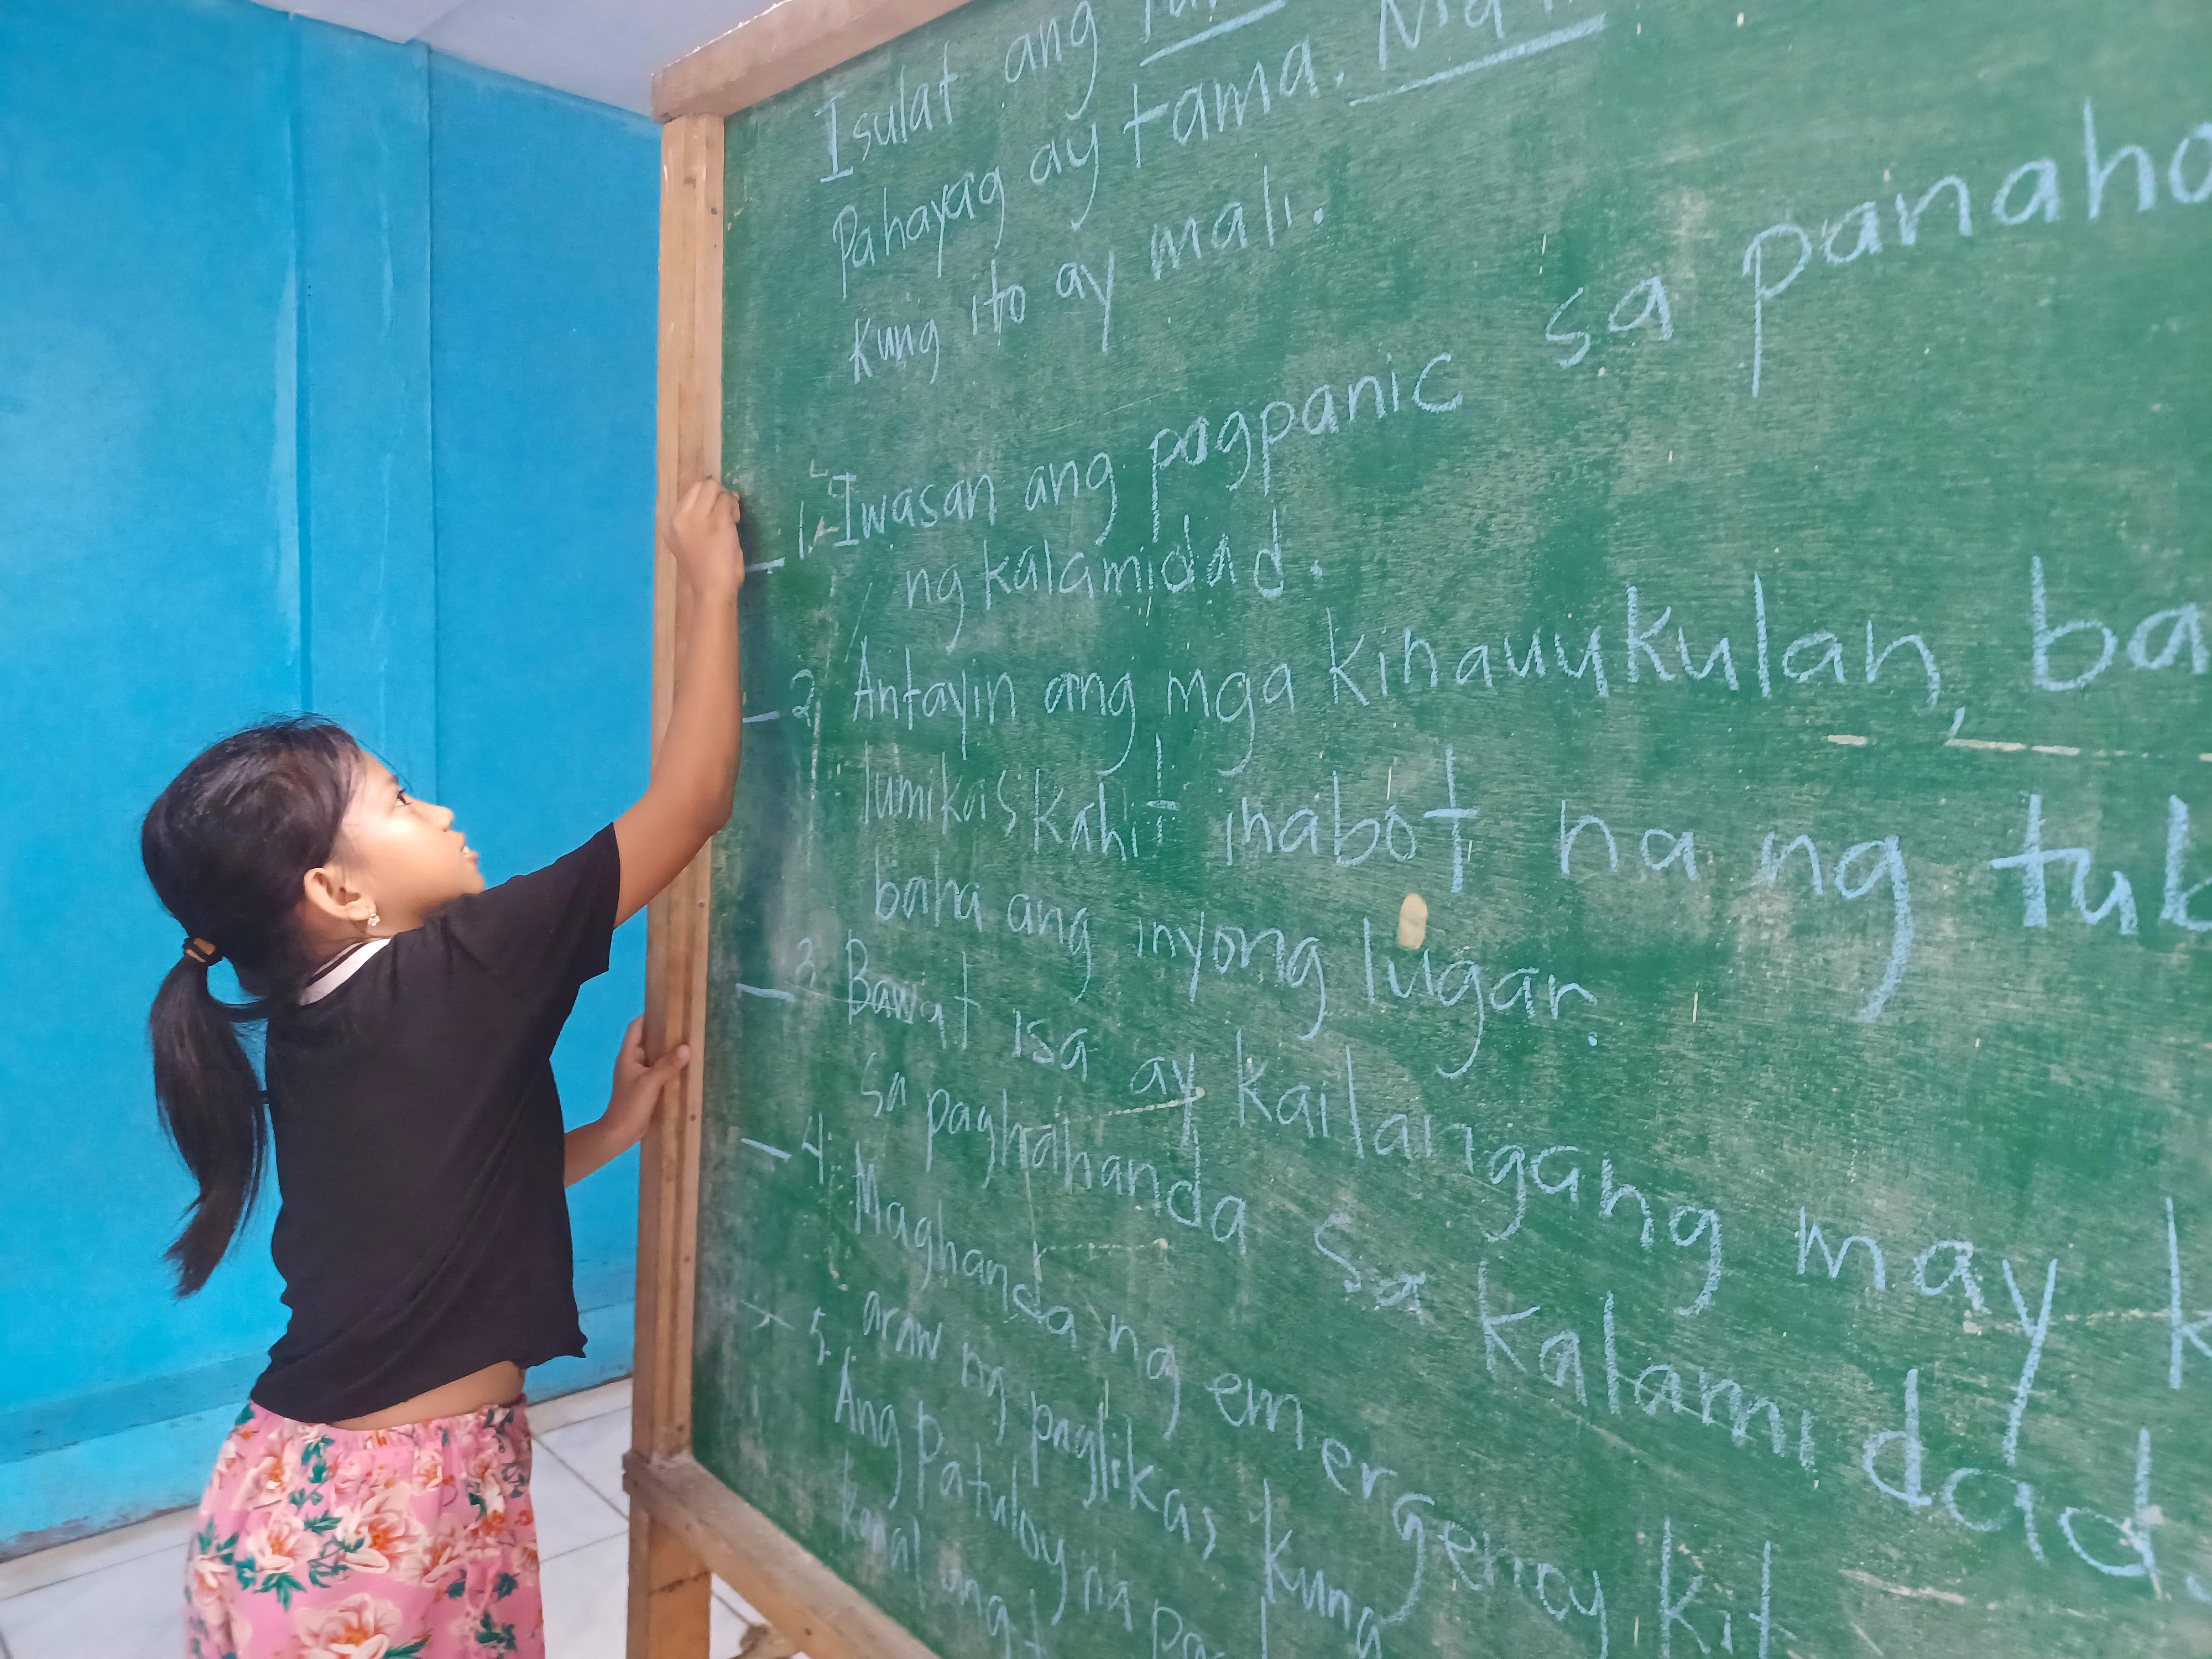 Isulat ang
Pahayag ay tama.
Kung ito ay mali.
_ 1. Iwasan ang pagpanic sa panaho
ng kalamidad.
_ 2. Antayin ang mga kinauuykulan, ba
lumikas kahit inabot na ng tub
baha ang inyong lugar.
_ 3. Bawat isa ay kailangang may k
sa paghahanda sa kalamidad.
_ 4. Maghanda ng emergency kit
araw ng paglikas kung
5. Ang patuloy na pa
kanal ang